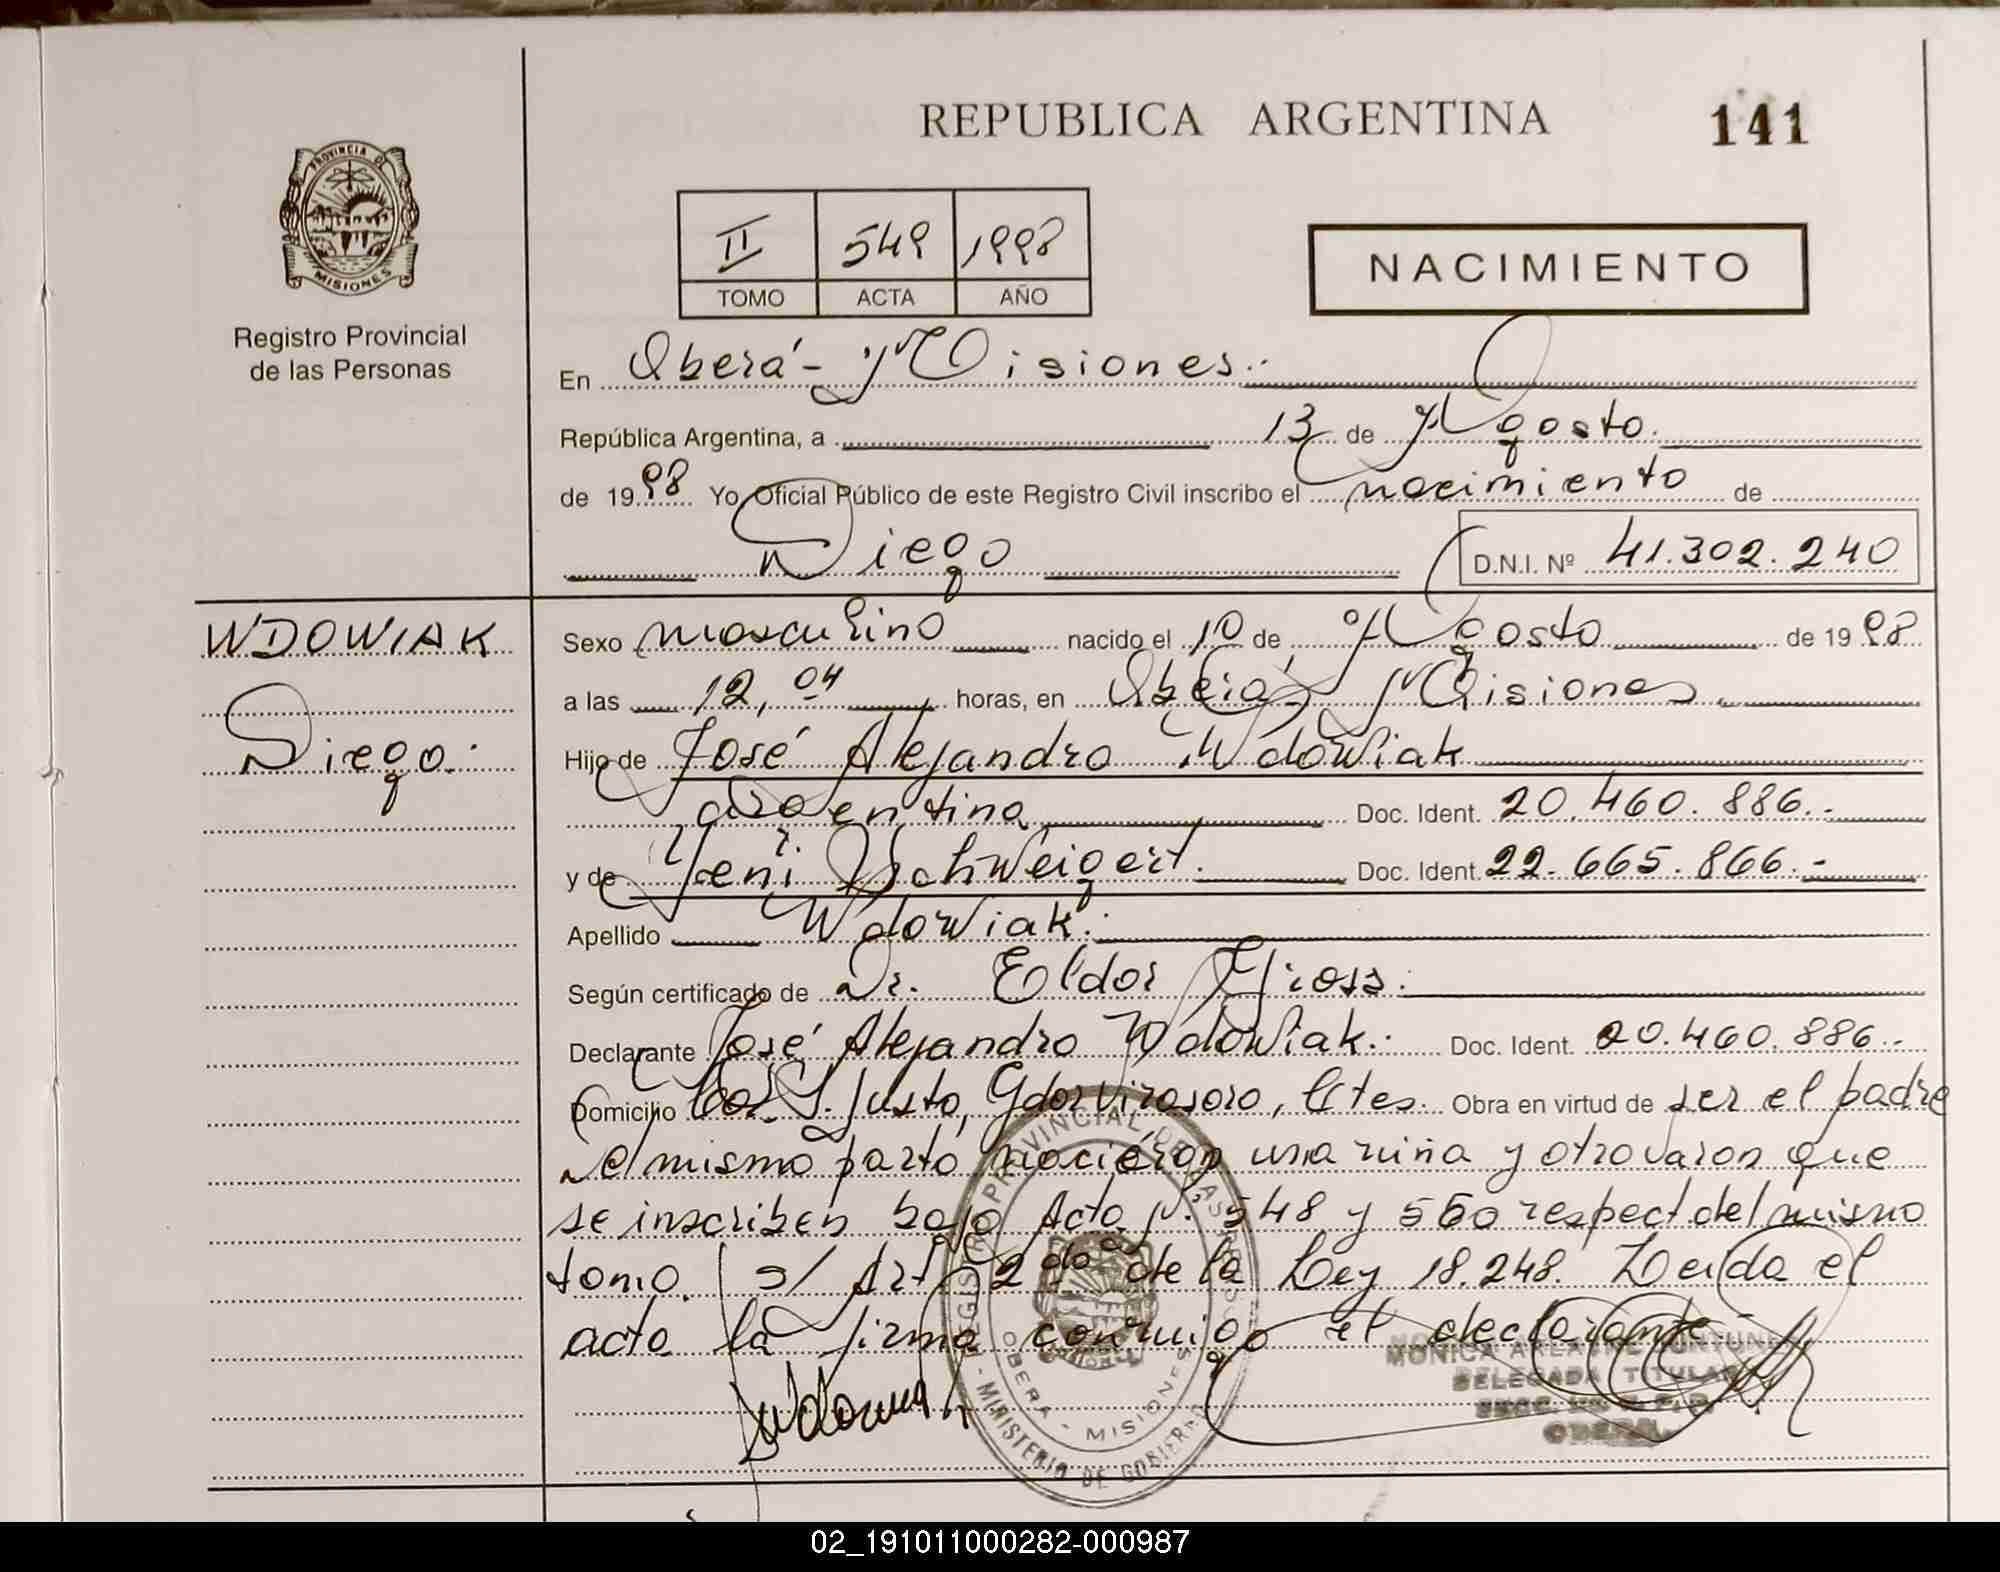 REPUBLICA ARGENTINA
141
PROVINCIA DE
MISIONES
Registro Provincial
de las Personas
II 549 1998
TOMO ACTA AÑO
NACIMIENTO
En Oberá - Misiones.
República Argentina, a 13 de Agosto.
de 1998 Yo Oficial Público de este Registro Civil inscribo el nacimiento de
Diego
D.N.I. Nº 41.302.240
WDOWIAK
Diego.
Sexo masculino nacido el 10 de Agosto de 1998
a las 12,04 horas, en Oberá - Misiones
Hijo de José Alejandro Wdowiak
argentina Doc. Ident. 20.460.886.-
y de Yeni Schweigert. Doc. Ident. 22.665.866.-
Apellido Wdowiak.
Según certificado de Dr. Eldor Gross.
Declarante José Alejandro Wdowiak. Doc. Ident. 20.460.886.-
Domicilio Justo, Gdor Virasoro, Ctes. Obra en virtud de ser el padre
el mismo parto nacieron una niña y otro varon que
se inscriben bajo Acta Nº 548 y 550 respect del mismo
tomo. s/ Art 2do de la Ley 18.248. Leida el
acta la firma conmigo el declarante.
REGISTRO PROVINCIAL DE LAS PERSONAS
OBERA - MISIONES
- MINISTERIO DE GOBIERNO
MONICA
DELEGADA TITULAR
OBERA
02_191011000282-000987